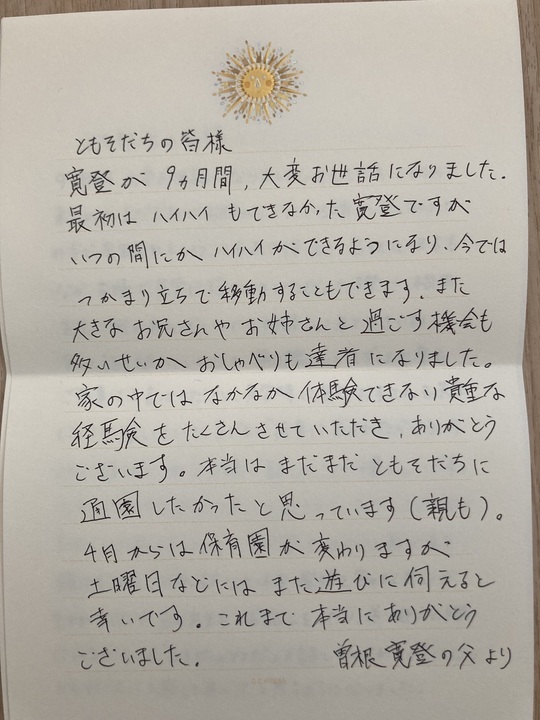 ともそだちの皆様
寛登が 9ヵ月間、大変お世話になりました。
最初は ハイハイ もできなかった 寛登ですが
いつの間にか ハイハイ ができるようになり、今では
つかまり立ちで移動することもできます。また
大きな お兄さんや お姉さんと 過ごす機会も
多いせいか おしゃべりも達者 になりました。
家の中では なかなか 体験できない貴重な
経験 を たくさん させていただき、ありがとう
ございます。本当は まだまだ ともそだちに
通園したかったと思っています(親も)。
4月からは 保育園が 変わりますが
土曜日などには また遊びに 伺えると
幸いです。これまで 本当にありがとう
ございました。
曽根 寛登の父より